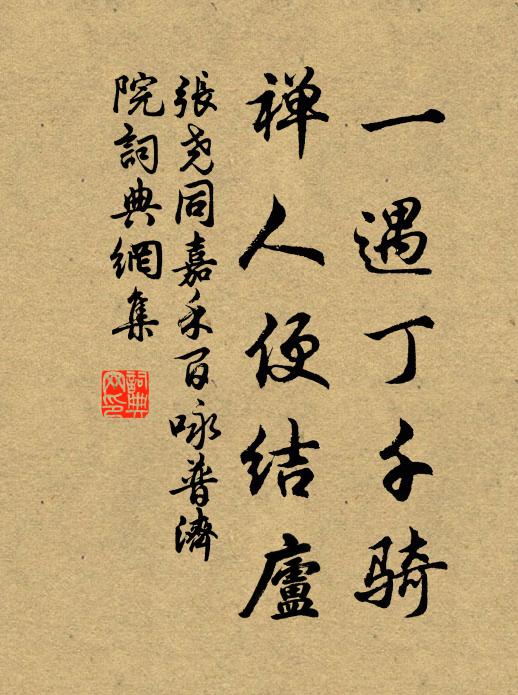 一遇丁千骑
禅人便结廬
張尧同嘉禾百咏普濟
院詞典網集
詞典
网印